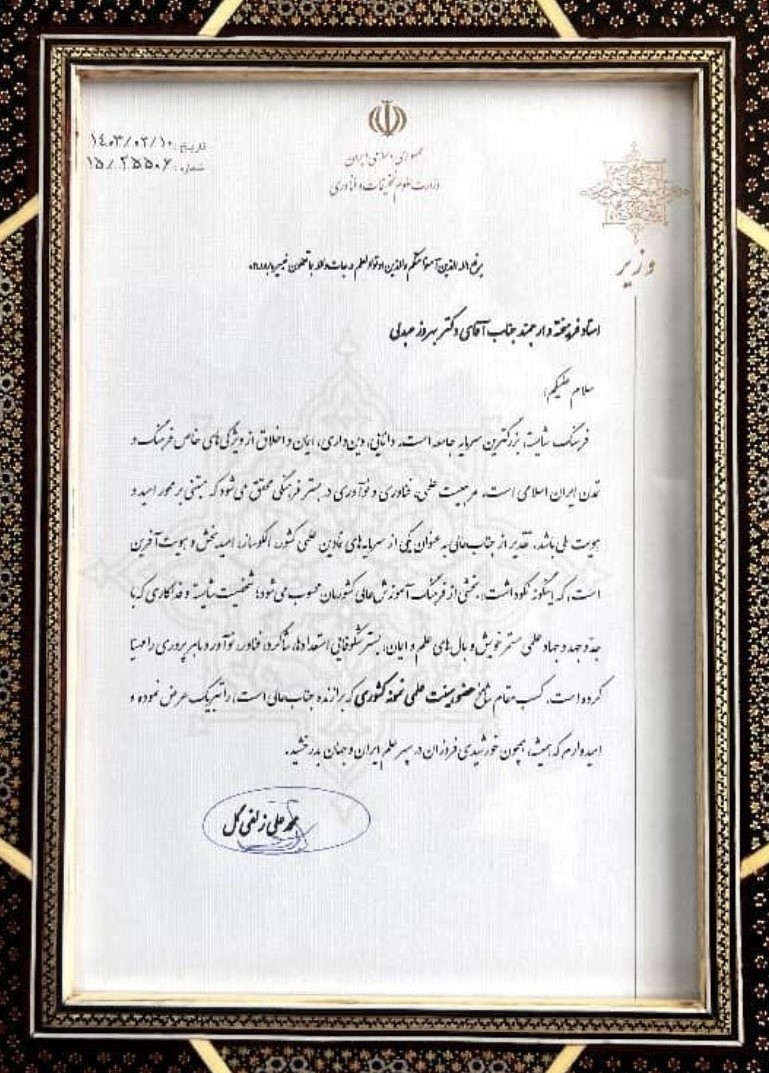 تاریخ: ۱۴۰۳/۰۲/۱۰
شماره: ۱۵/۲۵۵۰۶
جمهوری اسلامی ایران
وزارت علوم، تحقیقات و فناوری
وزیر
یرفع الله الذین آمنوا منکم والذین اوتوا العلم درجات والله بما تعملون خبیر
استاد فرهیخته و ارجمند جناب آقای دکتر بهروز عبدلی
سلام علیکم؛
فرهنگ شایسته، بزرگترین سرمایه جامعه است. دانایی، دین‌داری، ایمان و اخلاق از ویژگی‌های خاص فرهنگ و
تمدن ایران اسلامی است. مرجعیت علمی، فناوری و نوآوری در بستر فرهنگی محقق می‌شود که مبتنی بر محور امید و
هویت ملی باشد. تقدیر از جناب‌عالی به عنوان یکی از سرمایه‌های نمادین علمی کشور، الگوساز، امیدبخش و هویت‌آفرین
است، که اینگونه نکوداشت، بخشی از فرهنگ آموزش عالی کشورمان محسوب می‌شود؛ شخصیت شایسته و فداکاری که با
جد و جهد و جهاد علمی مستمر خویش و بال‌های علم و ایمان، بستر شکوفایی استعدادها، شاگرد، فناور، نوآور و ماهرپروری را مهیا
کرده است. کسب مقام شامخ عضو هیئت علمی نمونه کشوری که برازنده جناب‌عالی است، را تبریک عرض نموده و
امیدوارم که همیشه، همچون خورشیدی فروزان در سپهر علم ایران و جهان بدرخشید.
محمدعلی زلفی گل